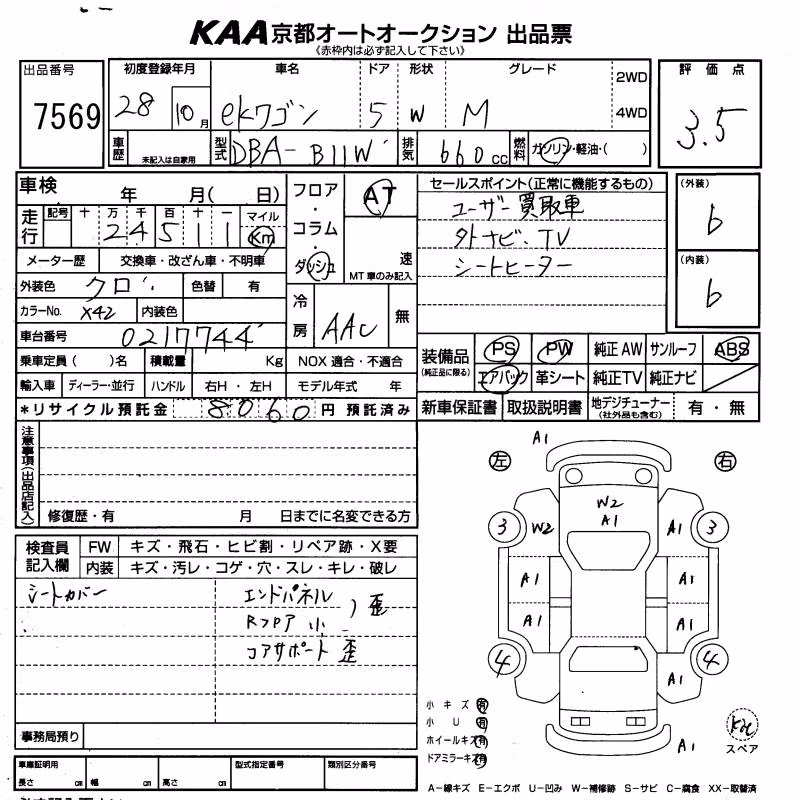 KAA 京都オートオークション 出品票
《赤枠内は必ず記入して下さい》
出品番号 7569
初度登録年月 28 10月
車名 eKワゴン
ドア 5
形状 W
グレード M
2WD
4WD
評価点 3.5
車歴 未記入は自家用
型式 DBA-B11W
排気 660cc
燃料 ガソリン・軽油・( )
車検 年 月( 日)
走行 記号 十 万 千 百 十 一 マイル Km
24511
メーター歴 交換車・改ざん車・不明車
外装色 クロ 色替 有
カラーNo. X42 内装色
車台番号 0217744
乗車定員( )名 積載量 Kg NOX 適合・不適合
輸入車 ディーラー・並行 ハンドル 右H・左H モデル年式 年
*リサイクル預託金 8060 円 預託済み
フロア・コラム・ダッシュ
AT
速
MT車のみ記入
冷房 AAC 無
セールスポイント(正常に機能するもの)
ユーザー買取車
外ナビ、TV
シートヒーター
(外装) 6
(内装) 6
装備品 (純正品に限る)
PS PW 純正AW サンルーフ ABS
エアバック 革シート 純正TV 純正ナビ
新車保証書 取扱説明書 地デジチューナー(社外品も含む) 有・無
注意事項(出品店記入)
修復歴・有 月 日までに名変できる方
検査員記入欄
FW キズ・飛石・ヒビ割・リペア跡・X要
内装 キズ・汚レ・コゲ・穴・スレ・キレ・破レ
シートカバー
エンドパネル
Rフロア 小 ) 歪
コアサポート 歪
事務局預り
車庫証明用
長さ cm 幅 cm 高さ cm
型式指定番号
類別区分番号
A1
左 右
W2
A1
3 W2 A1 3
A1 A1
A1 A1
4 4
A1
A1
小キズ 有
小U 有
ホイールキズ 有
ドアミラーキズ 有
スペア
A-線キズ E-エクボ U-凹み W-補修跡 S-サビ C-腐食 XX-取替済